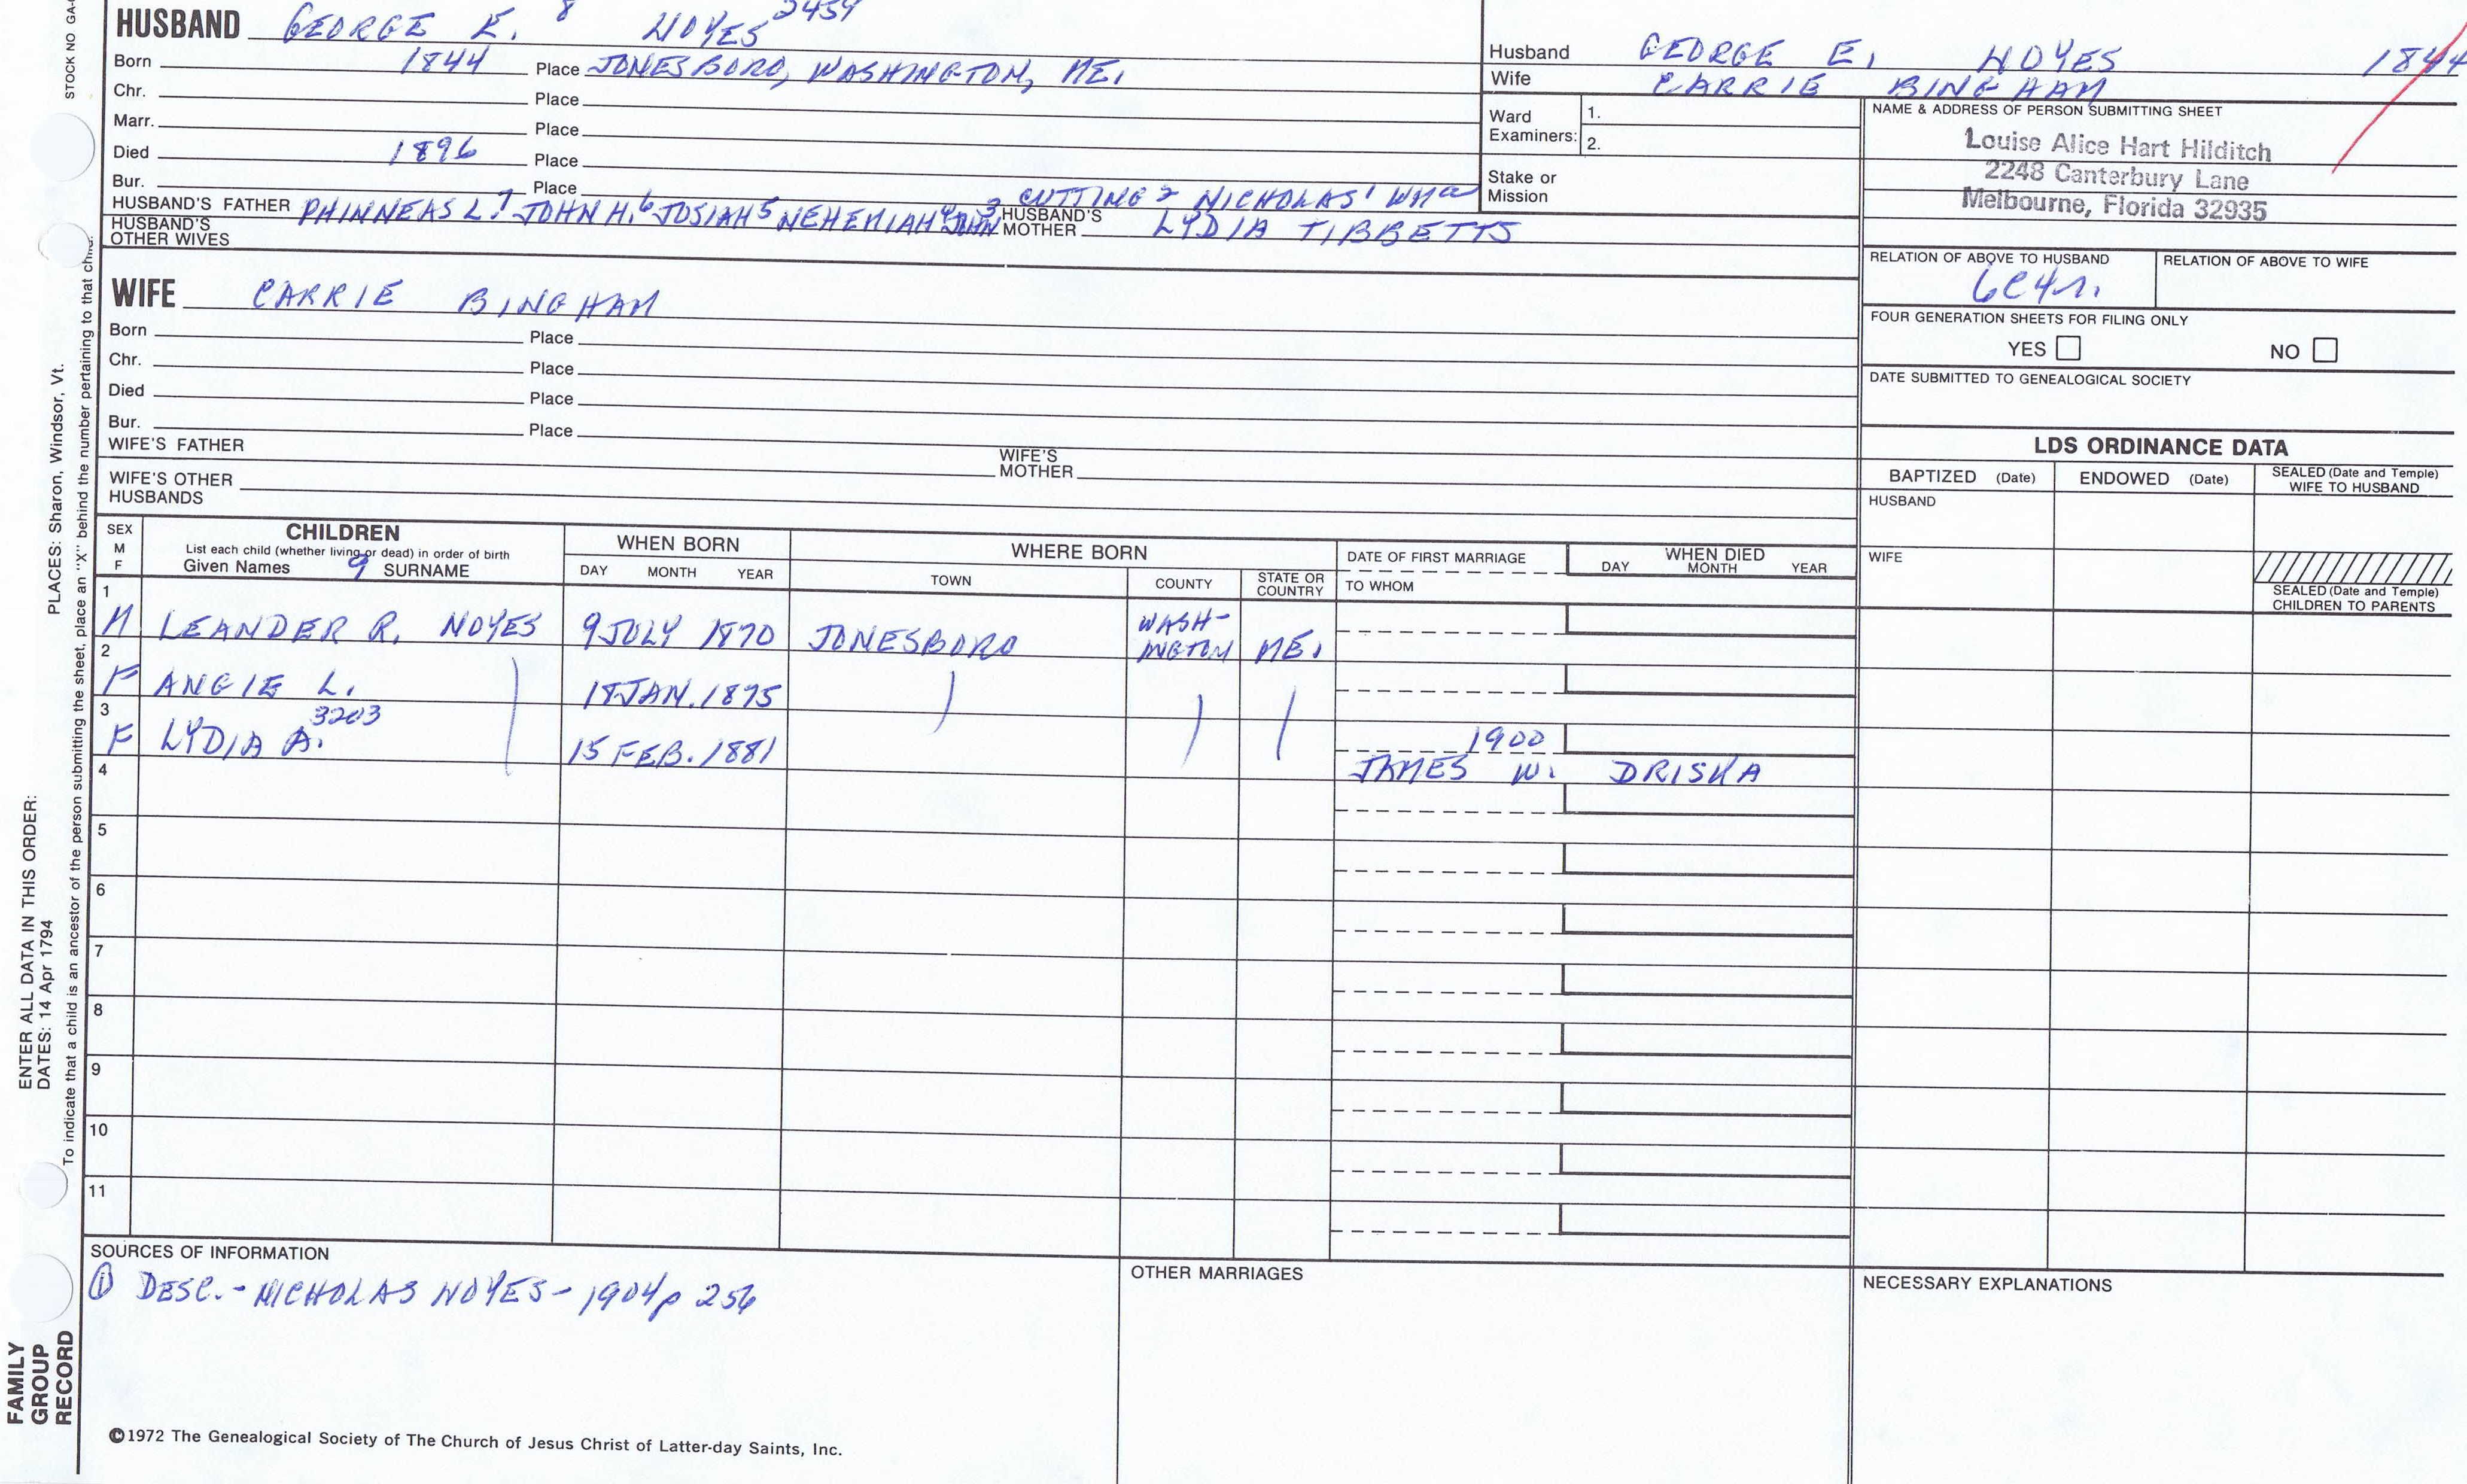 HUSBAND GEORGE E. 8 NOYES 2459
Born 1844 Place JONESBORO, WASHINGTON, ME.
Chr. Place
Marr. Place
Died 1896 Place
Bur. Place
HUSBAND'S FATHER PHINNEAS L.7 JOHN H.6 JOSIAH5 NEHEMIAH4 JOHN3 CUTTING2 NICHOLAS1 WM
HUSBAND'S MOTHER LYDIA TIBBETTS
HUSBAND'S OTHER WIVES
Husband GEORGE E. NOYES 1844
Wife CARRIE BINGHAM
Ward Examiners: 1.
2.
Stake or Mission
NAME & ADDRESS OF PERSON SUBMITTING SHEET
Louise Alice Hart Hilditch
2248 Canterbury Lane
Melbourne, Florida 32935
RELATION OF ABOVE TO HUSBAND RELATION OF ABOVE TO WIFE
6C4r.
FOUR GENERATION SHEETS FOR FILING ONLY
YES NO
DATE SUBMITTED TO GENEALOGICAL SOCIETY
WIFE CARRIE BINGHAM
Born Place
Chr. Place
Died Place
Bur. Place
WIFE'S FATHER WIFE'S MOTHER
WIFE'S OTHER HUSBANDS
LDS ORDINANCE DATA
BAPTIZED (Date) ENDOWED (Date) SEALED (Date and Temple) WIFE TO HUSBAND
HUSBAND
WIFE
SEALED (Date and Temple) CHILDREN TO PARENTS
SEX M F
CHILDREN
List each child (whether living or dead) in order of birth
Given Names 9 SURNAME
WHEN BORN
DAY MONTH YEAR
WHERE BORN
TOWN COUNTY STATE OR COUNTRY
DATE OF FIRST MARRIAGE
TO WHOM
WHEN DIED
DAY MONTH YEAR
1 M LEANDER R. NOYES 9 JULY 1870 JONESBORO WASH-INGTON ME.
2 F ANGIE L. 18 JAN. 1875
3 F LYDIA A. 3203 15 FEB. 1881 1900
JAMES W. DRISKA
4
5
6
7
8
9
10
11
SOURCES OF INFORMATION
① DESC.-NICHOLAS NOYES-1904 p 256
OTHER MARRIAGES
NECESSARY EXPLANATIONS
©1972 The Genealogical Society of The Church of Jesus Christ of Latter-day Saints, Inc.
STOCK NO GA-
PLACES: Sharon, Windsor, Vt.
To indicate that a child is an ancestor of the person submitting the sheet, place an "X" behind the number pertaining to that
ENTER ALL DATA IN THIS ORDER:
DATES: 14 Apr 1794
FAMILY
GROUP
RECORD